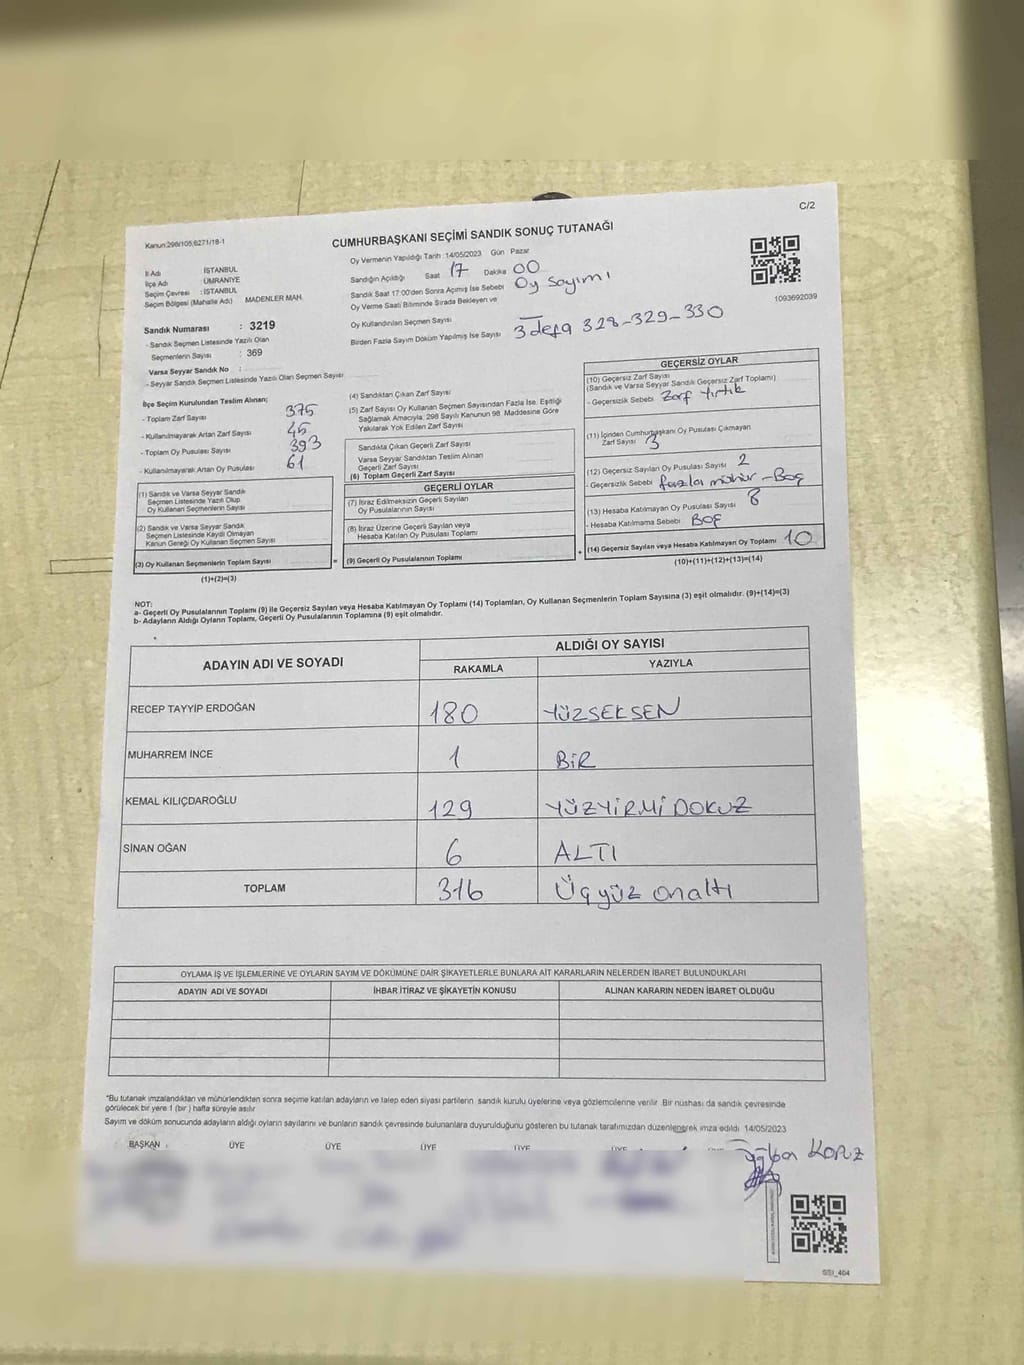 C/2
Kanun:298/105;6271/18-1
CUMHURBAŞKANI SEÇİMİ SANDIK SONUÇ TUTANAĞI
İl Adı : İSTANBUL
İlçe Adı : ÜMRANİYE
Seçim Çevresi : İSTANBUL
Seçim Bölgesi (Mahalle Adı) MADENLER MAH.
Oy Vermenin Yapıldığı Tarih :14/05/2023 Gün Pazar
Sandığın Açıldığı Saat 17 Dakika 00
Sandık Saat 17:00'den Sonra Açılmış İse Sebebi Oy Sayımı
Oy Verme Saati Bitiminde Sırada Bekleyen ve
Oy Kullandırılan Seçmen Sayısı
Birden Fazla Sayım Döküm Yapılmış İse Sayısı 3 defa 328-329-330
1093692039
Sandık Numarası : 3219
- Sandık Seçmen Listesinde Yazılı Olan
Seçmenlerin Sayısı : 369
Varsa Seyyar Sandık No :
- Seyyar Sandık Seçmen Listesinde Yazılı Olan Seçmen Sayısı
İlçe Seçim Kurulundan Teslim Alınan;
- Toplam Zarf Sayısı 375
- Kullanılmayarak Artan Zarf Sayısı 45
- Toplam Oy Pusulası Sayısı 393
- Kullanılmayarak Artan Oy Pusulası 61
(1) Sandık ve Varsa Seyyar Sandık
Seçmen Listesinde Yazılı Olup
Oy Kullanan Seçmenlerin Sayısı
(2) Sandık ve Varsa Seyyar Sandık
Seçmen Listesinde Kaydı Olmayan
Kanun Gereği Oy Kullanan Seçmen Sayısı
(3) Oy Kullanan Seçmenlerin Toplam Sayısı
(1)+(2)=(3)
(4) Sandıktan Çıkan Zarf Sayısı
(5) Zarf Sayısı Oy Kullanan Seçmen Sayısından Fazla İse, Eşitliği
Sağlamak Amacıyla, 298 Sayılı Kanunun 98. Maddesine Göre
Yakılarak Yok Edilen Zarf Sayısı
Sandıkta Çıkan Geçerli Zarf Sayısı
Varsa Seyyar Sandıktan Teslim Alınan
Geçerli Zarf Sayısı
(6) Toplam Geçerli Zarf Sayısı
GEÇERLİ OYLAR
(7) İtiraz Edilmeksizin Geçerli Sayılan
Oy Pusulalarının Sayısı
(8) İtiraz Üzerine Geçerli Sayılan veya
Hesaba Katılan Oy Pusulası Toplamı
= (9) Geçerli Oy Pusulalarının Toplamı +
GEÇERSİZ OYLAR
(10) Geçersiz Zarf Sayısı
(Sandık ve Varsa Seyyar Sandık Geçersiz Zarf Toplamı)
- Geçersizlik Sebebi Zarf Yırtık
(11) İçinden Cumhurbaşkanı Oy Pusulası Çıkmayan
Zarf Sayısı 3
(12) Geçersiz Sayılan Oy Pusulası Sayısı 2
- Geçersizlik Sebebi fazla mühür - Boş
(13) Hesaba Katılmayan Oy Pusulası Sayısı 8
- Hesaba Katılmama Sebebi Boş
(14) Geçersiz Sayılan veya Hesaba Katılmayan Oy Toplamı 10
(10)+(11)+(12)+(13)=(14)
NOT:
a- Geçerli Oy Pusulalarının Toplamı (9) ile Geçersiz Sayılan veya Hesaba Katılmayan Oy Toplamı (14) Toplamları, Oy Kullanan Seçmenlerin Toplam Sayısına (3) eşit olmalıdır. (9)+(14)=(3)
b- Adayların Aldığı Oyların Toplamı, Geçerli Oy Pusulalarının Toplamına (9) eşit olmalıdır.
ADAYIN ADI VE SOYADI
ALDIĞI OY SAYISI
RAKAMLA YAZIYLA
RECEP TAYYİP ERDOĞAN 180 YÜZSEKSEN
MUHARREM İNCE 1 BİR
KEMAL KILIÇDAROĞLU 129 YÜZYİRMİ DOKUZ
SİNAN OĞAN 6 ALTI
TOPLAM 316 Üçyüz onaltı
OYLAMA İŞ VE İŞLEMLERİNE VE OYLARIN SAYIM VE DÖKÜMÜNE DAİR ŞİKAYETLERLE BUNLARA AİT KARARLARIN NELERDEN İBARET BULUNDUKLARI
ADAYIN ADI VE SOYADI İHBAR İTİRAZ VE ŞİKAYETİN KONUSU ALINAN KARARIN NEDEN İBARET OLDUĞU
*Bu tutanak imzalandıktan ve mühürlendikten sonra seçime katılan adayların ve talep eden siyasi partilerin sandık kurulu üyelerine veya gözlemcilerine verilir. Bir nüshası da sandık çevresinde
görülecek bir yere 1 (bir) hafta süreyle asılır
Sayım ve döküm sonucunda adayların aldığı oyların sayılarını ve bunların sandık çevresinde bulunanlara duyurulduğunu gösteren bu tutanak tarafımızdan düzenlenerek imza edildi. 14/05/2023
BAŞKAN ÜYE ÜYE ÜYE ÜYE ÜYE
SSI_464